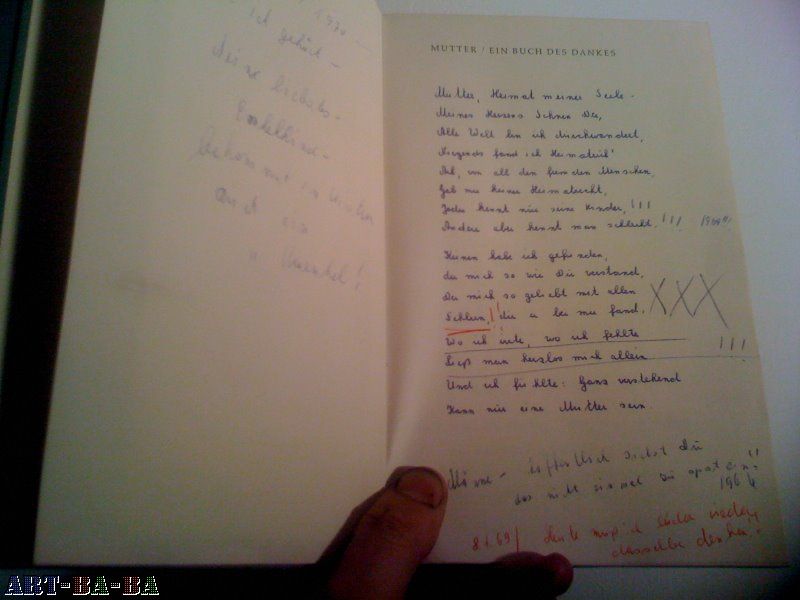 1970 —
ich gehört —
deine liebes-
Enkelkind —
bekommt
auch ein
" Urenkel!
MUTTER / EIN BUCH DES DANKES
Mutter, Heimat meiner Seele -
Meines Herzens Sehnen Du,
Alle Welt bin ich durchwandert,
Nirgends fand ich Heimatruh!
Ach, von all den fremden Menschen,
Gab mir keiner Heimatrecht,
Jeder kennt nur seine Kinder, !!!
Andere aber kennt man schlecht. !!! 1969!!!
Keinen habe ich gefunden,
der mich so wie Du verstand,
Der mich so geliebt mit allen XXX
die er bei mir fand.
Wo ich irrte, wo ich fehlte
Ließ man herzlos mich allein !!!
Und ich fühlte: Ganz verstehend
Kann nur eine Mutter sein.
hoffentlich siehst Du
das nicht einmal zu spät ein!!
196
8.1.69/ heute muß ich leider wieder
dasselbe denken!
ART-BA-BA